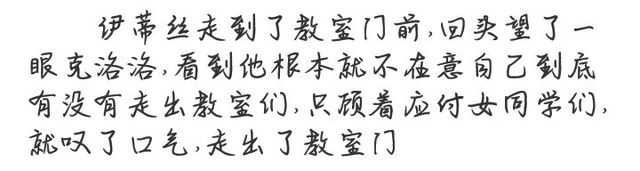 伊蒂丝走到了教室门前,回头望了一
眼克洛洛,看到他根本就不在意自己到底
有没有走出教室们,只顾着应付女同学们,
就叹了口气,走出了教室门